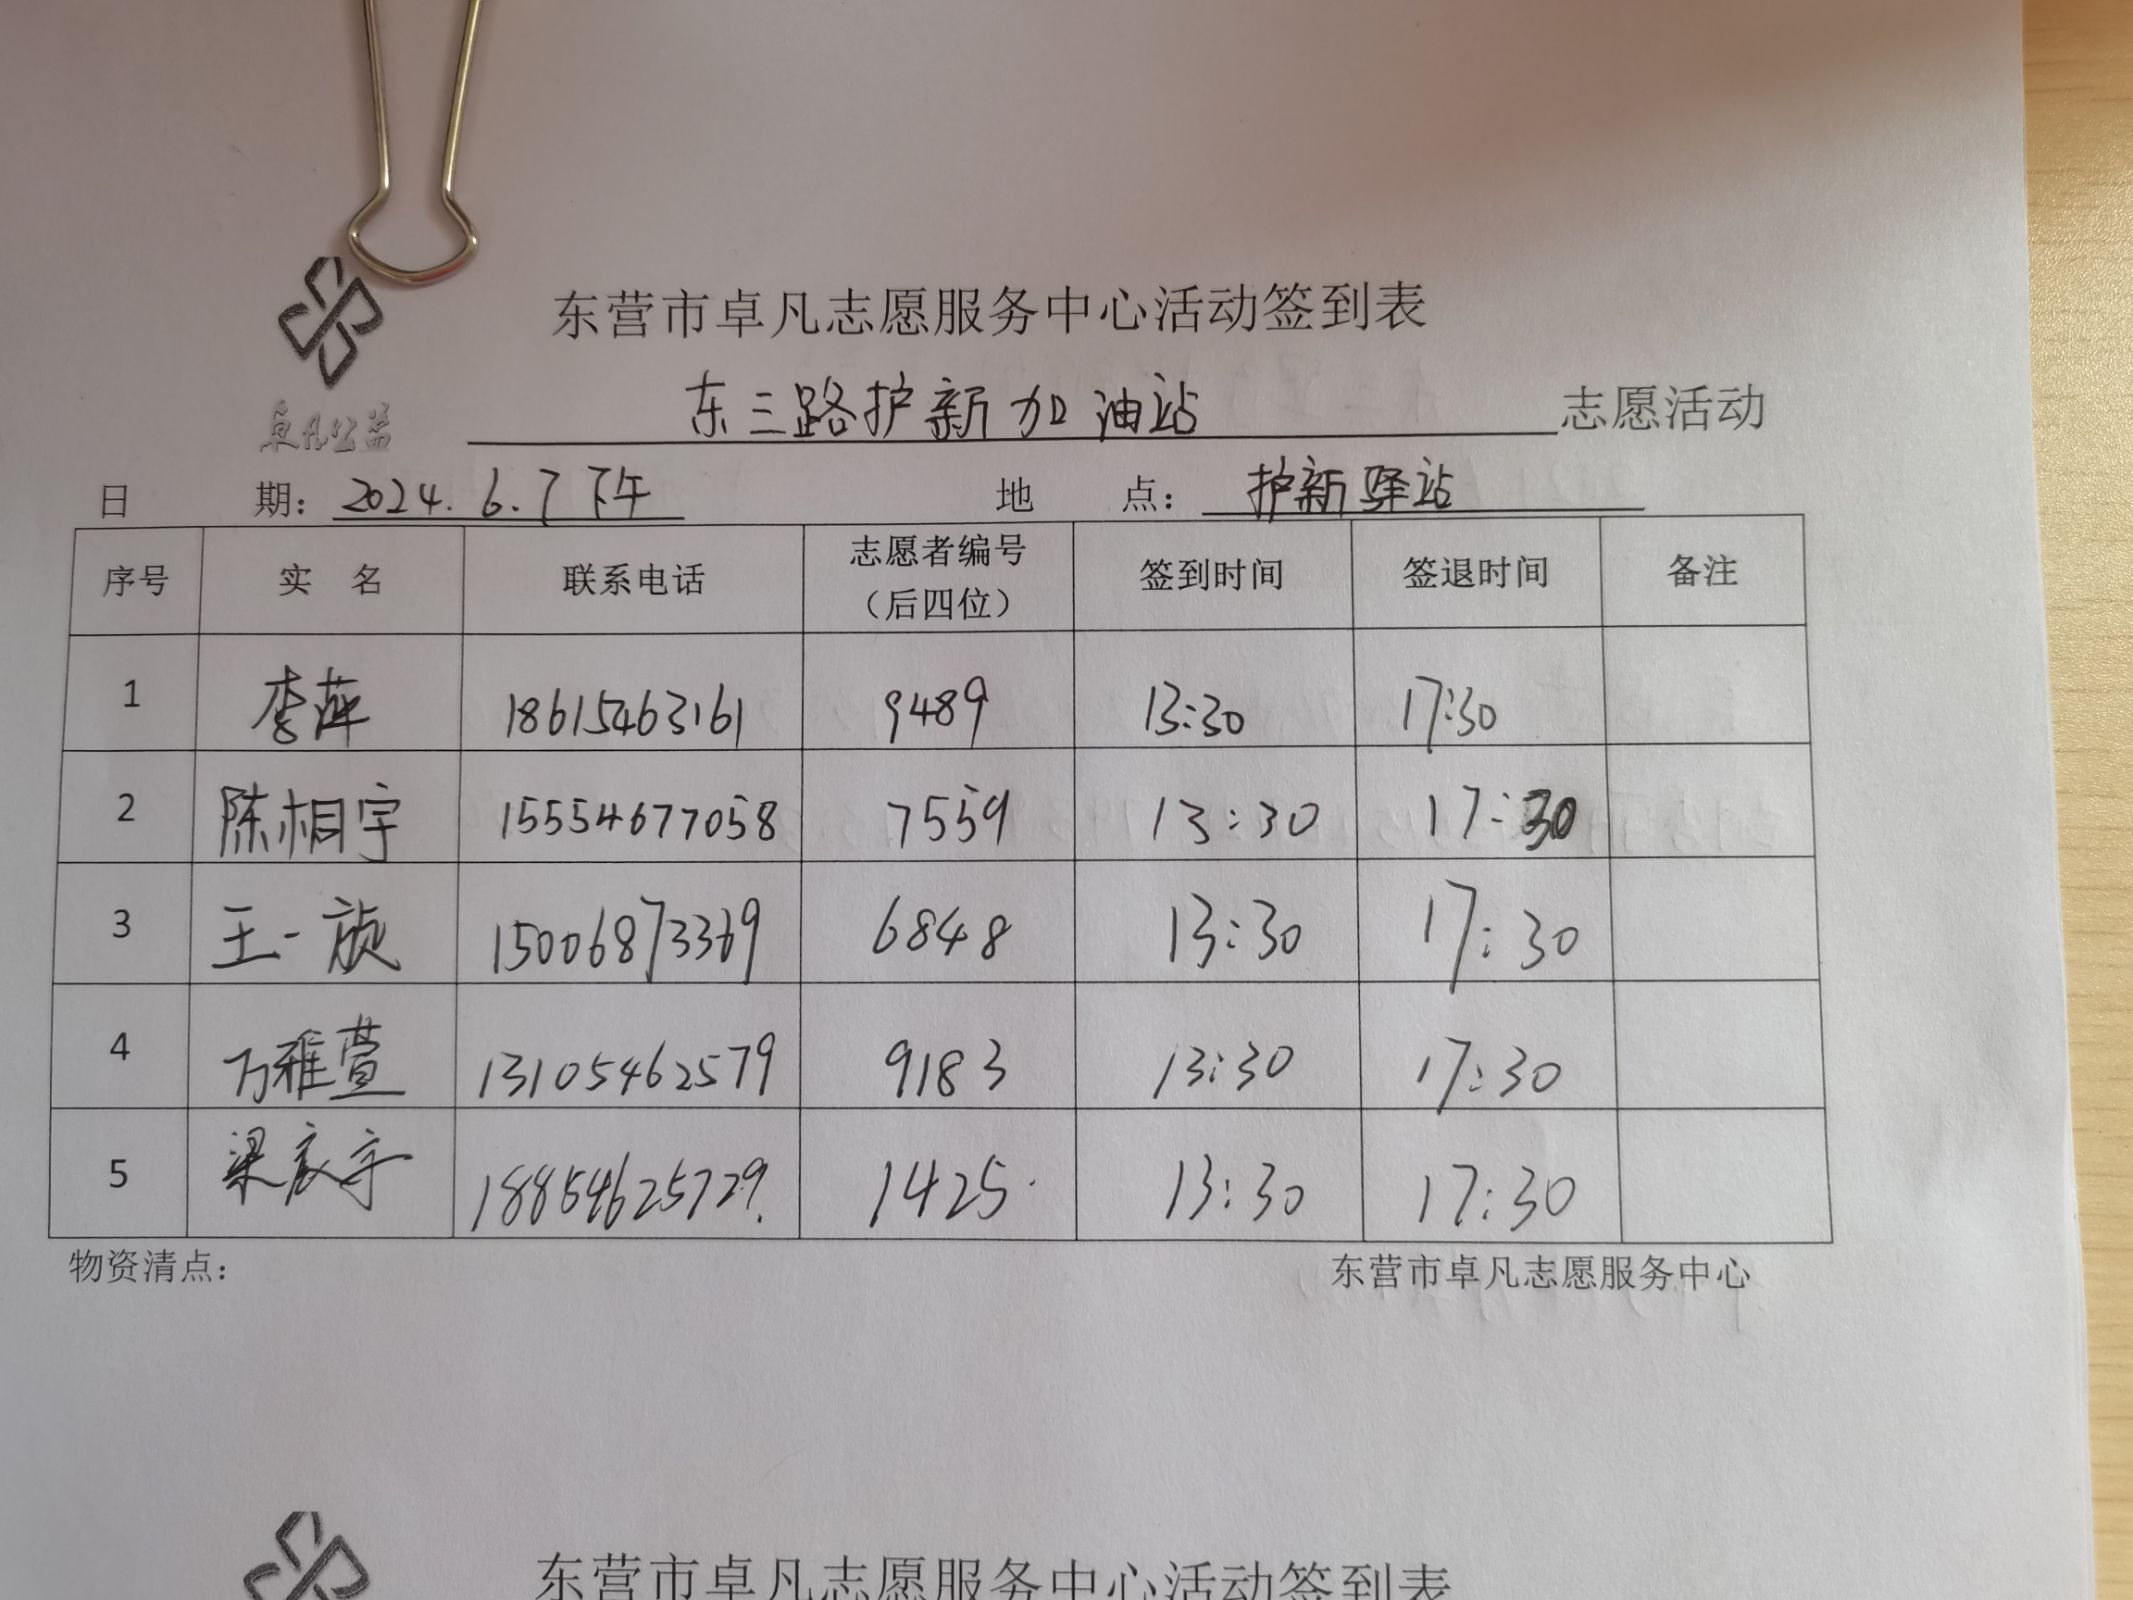 东营市卓凡志愿服务中心活动签到表
卓凡公益
东三路护新加油站 志愿活动
日 期：2024.6.7下午 地 点：护新驿站
序号 实 名 联系电话 志愿者编号（后四位） 签到时间 签退时间 备注
1 李萍 18615463161 9489 13:30 17:30
2 陈相宇 15554677058 7559 13:30 17:30
3 王一旋 15006873369 6848 13:30 17:30
4 万雅萱 13105462579 9183 13:30 17:30
5 梁宸宇 18854625729. 1425 13:30 17:30
物资清点： 东营市卓凡志愿服务中心
东营市卓凡志愿服务中心活动签到表